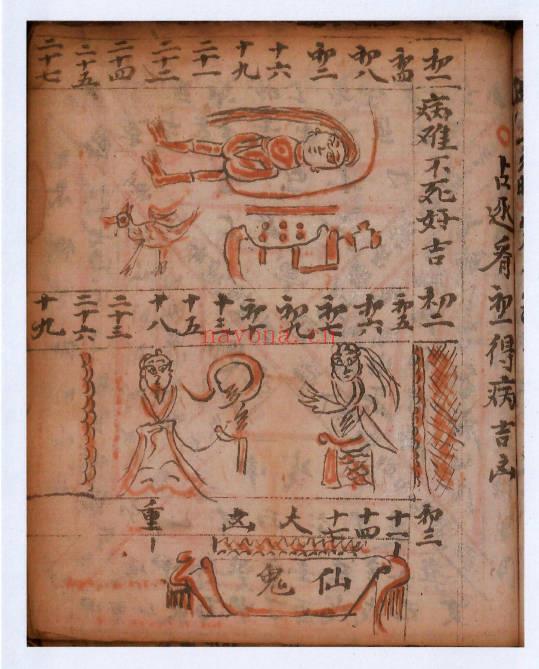 占逐看初一得病吉凶
初一
病难不死好吉
初四 初八 初二 十六 十九 二十一 二十二 二十四 二十五 二十七
初二
初五 初六 初七 初九 初十 十三 十五 十八 二十三 二十六
nayona.cn
初三
十一 十四 十七 大凶 重
仙鬼